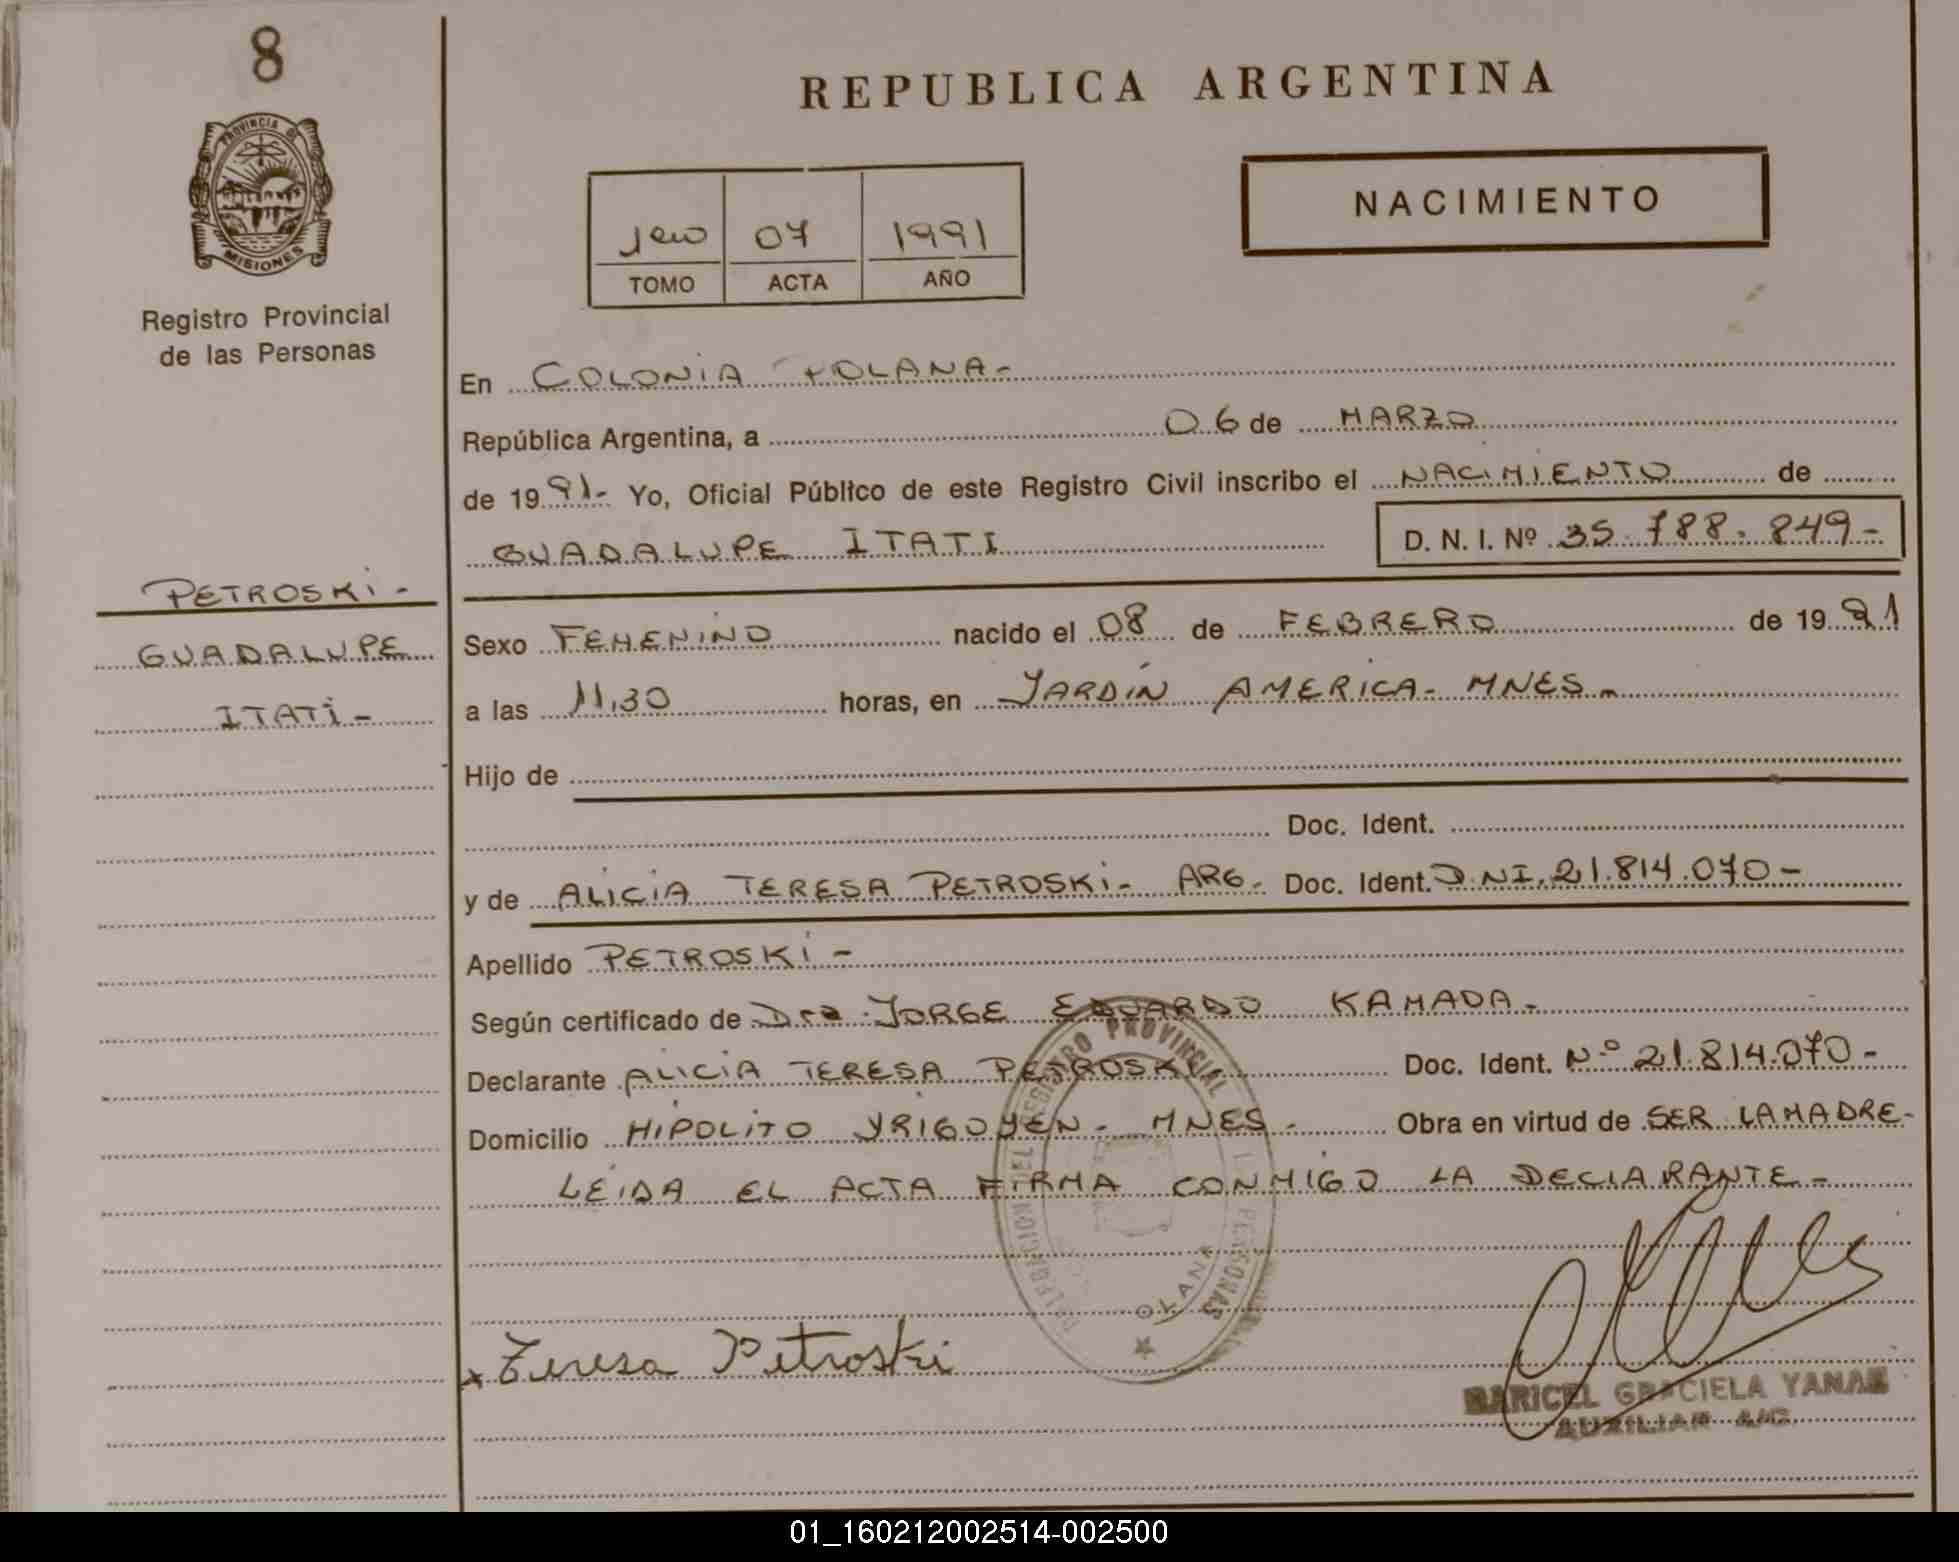 8
PROVINCIA DE
MISIONES
Registro Provincial
de las Personas
PETROSKI -
GUADALUPE
ITATI -
REPUBLICA ARGENTINA
1ero 07 1991
TOMO ACTA AÑO
NACIMIENTO
En COLONIA POLANA -
República Argentina, a 06 de MARZO
de 1991 - Yo, Oficial Público de este Registro Civil inscribo el NACIMIENTO de
GUADALUPE ITATI D. N. I. Nº 35.788.849 -
Sexo FEMENINO nacido el 08 de FEBRERO de 1991
a las 11,30 horas, en JARDIN AMERICA - MNES -
Hijo de
Doc. Ident.
y de ALICIA TERESA PETROSKI - ARG - Doc. Ident. D.NI. 21.814.070 -
Apellido PETROSKI -
Según certificado de JORGE EDUARDO KAMADA -
Declarante ALICIA TERESA PETROSKI - Doc. Ident. Nº 21.814.070 -
Domicilio HIPOLITO YRIGOYEN - MNES - Obra en virtud de SER LA MADRE -
LEIDA EL ACTA FIRMA CONMIGO LA DECLARANTE -
DEL REGISTRO PROVINCIAL PERSONAS
OLANA
x Teresa Petroski
MARICEL GRACIELA YANAE
AUXILIAR A/C
01_160212002514-002500